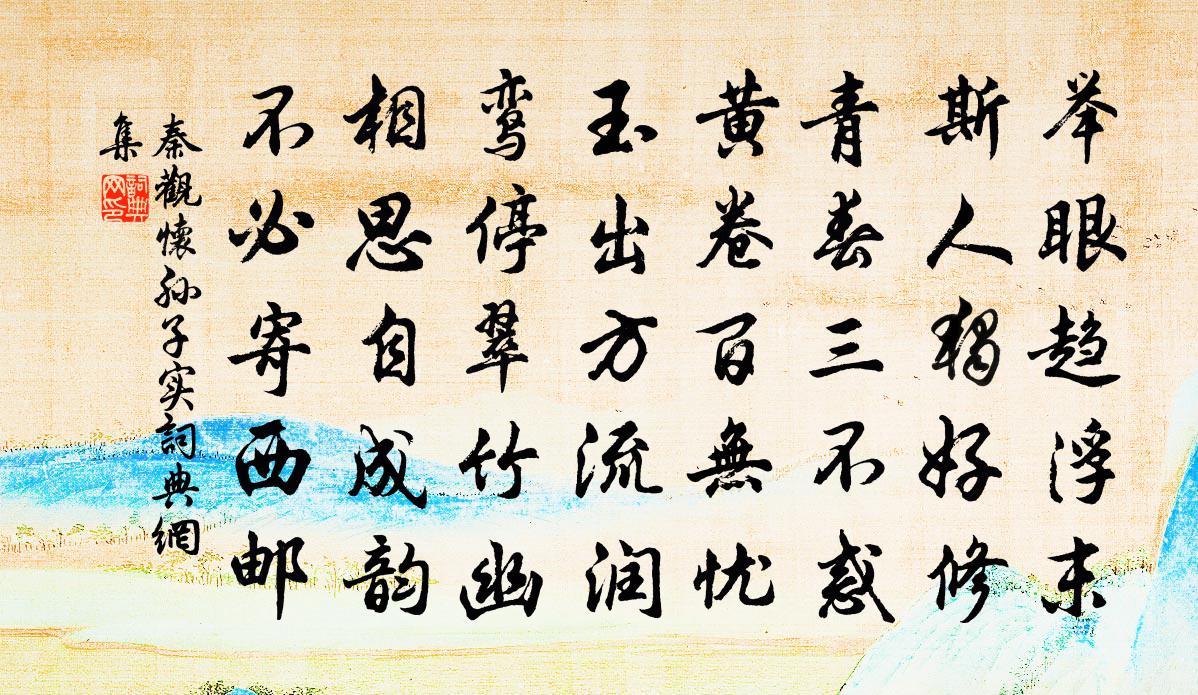 举眼趋浮末
斯人独好修
青春三不惑
黄卷百無忧
玉出方流润
鸾停翠竹幽
相思自成韵
不必寄西邮
秦觀懷孙子实詞典網
集
詞典
网印